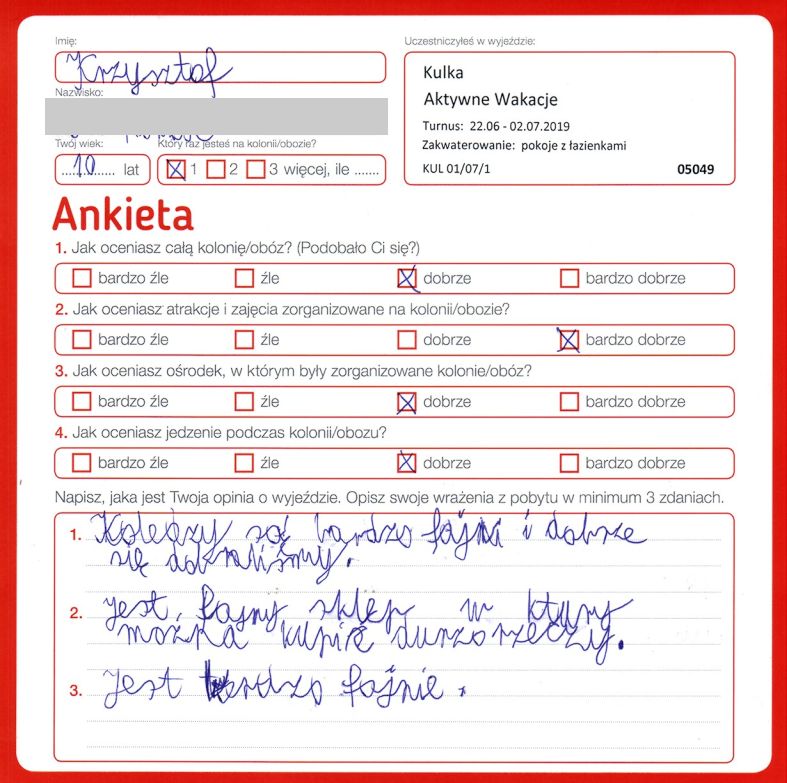 Imię:
Krzysztof
Nazwisko:
Twój wiek:
10 lat
Który raz jesteś na kolonii/obozie?
1 2 3 więcej, ile .......
Uczestniczyłeś w wyjeździe:
Kulka
Aktywne Wakacje
Turnus: 22.06 - 02.07.2019
Zakwaterowanie: pokoje z łazienkami
KUL 01/07/1 05049
Ankieta
1. Jak oceniasz całą kolonię/obóz? (Podobało Ci się?)
bardzo źle źle dobrze bardzo dobrze
2. Jak oceniasz atrakcje i zajęcia zorganizowane na kolonii/obozie?
bardzo źle źle dobrze bardzo dobrze
3. Jak oceniasz ośrodek, w którym były zorganizowane kolonie/obóz?
bardzo źle źle dobrze bardzo dobrze
4. Jak oceniasz jedzenie podczas kolonii/obozu?
bardzo źle źle dobrze bardzo dobrze
Napisz, jaka jest Twoja opinia o wyjeździe. Opisz swoje wrażenia z pobytu w minimum 3 zdaniach.
1. Koledzy są bardzo fajni i dobrze
się dobraliśmy.
2. jest fajny sklep w ktury
można kupić durzo rzeczy.
3. Jest bardzo fajnie.